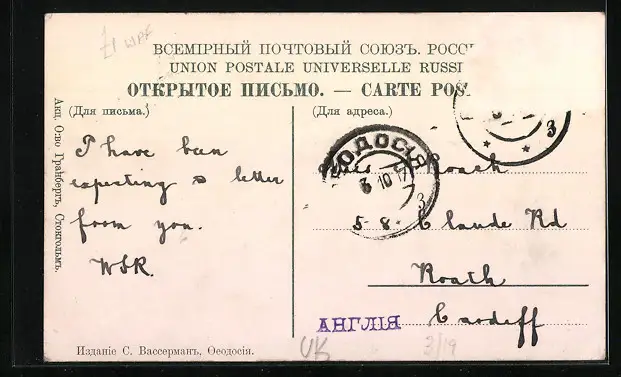 £1 WPF
ВСЕМІРНЫЙ ПОЧТОВЫЙ СОЮЗЪ. РОСС
UNION POSTALE UNIVERSELLE RUSSI
ОТКРЫТОЕ ПИСЬМО. — CARTE POS
(Для письма.)
(Для адреса.)
I have been
expecting a letter
from you.
WSR.
ѲЕОДОСІЯ
6 10 1
3
3
Roach
58 Claude Rd
Roath
Cardeff
АНГЛІЯ
UK
3/19
Акц. О-во Гранбергъ, Стокгольмъ.
Изданіе С. Вассерманъ, Ѳеодосія.